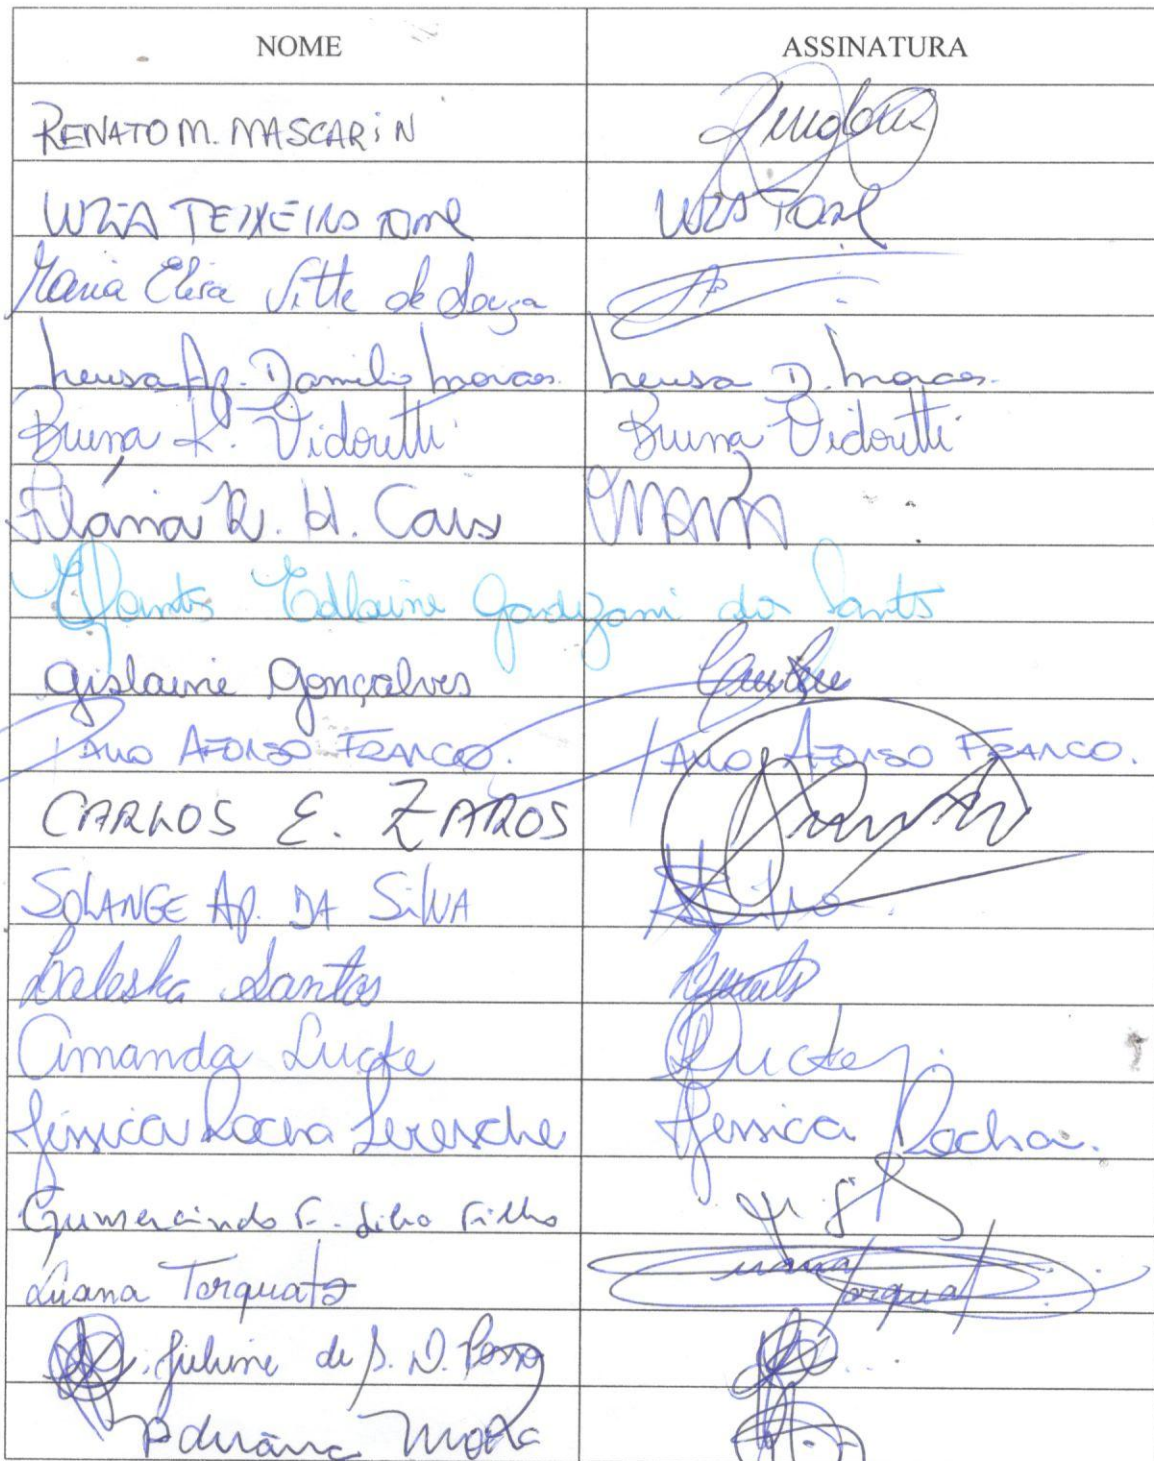 NOME ASSINATURA
RENATO M. MASCARIN
LUZIA TEIXEIRA TOMÉ LUZIA TOMÉ
Maria Elisa Vitte de Souza
Neusa Ap. Danilo Novaes. Neusa D. Novaes.
Bruna K. Vidoretti Bruna Vidoretti
Flávia R. H. Cais
ESantos Edlaine Gardizani dos Santos
Gislaine Gonçalves
PAULO AFONSO FRANCO. PAULO AFONSO FRANCO.
CARLOS E. ZAROS
SOLANGE AP. DA SILVA
Waleska Santos
Amanda Lucke Lucke
Jéssica Rocha Leresche Jessica Rocha.
Gumercindo F. Silva Filho
Luana Torquato Luana Torquato
Juliane de S. D.
Adriana Mota